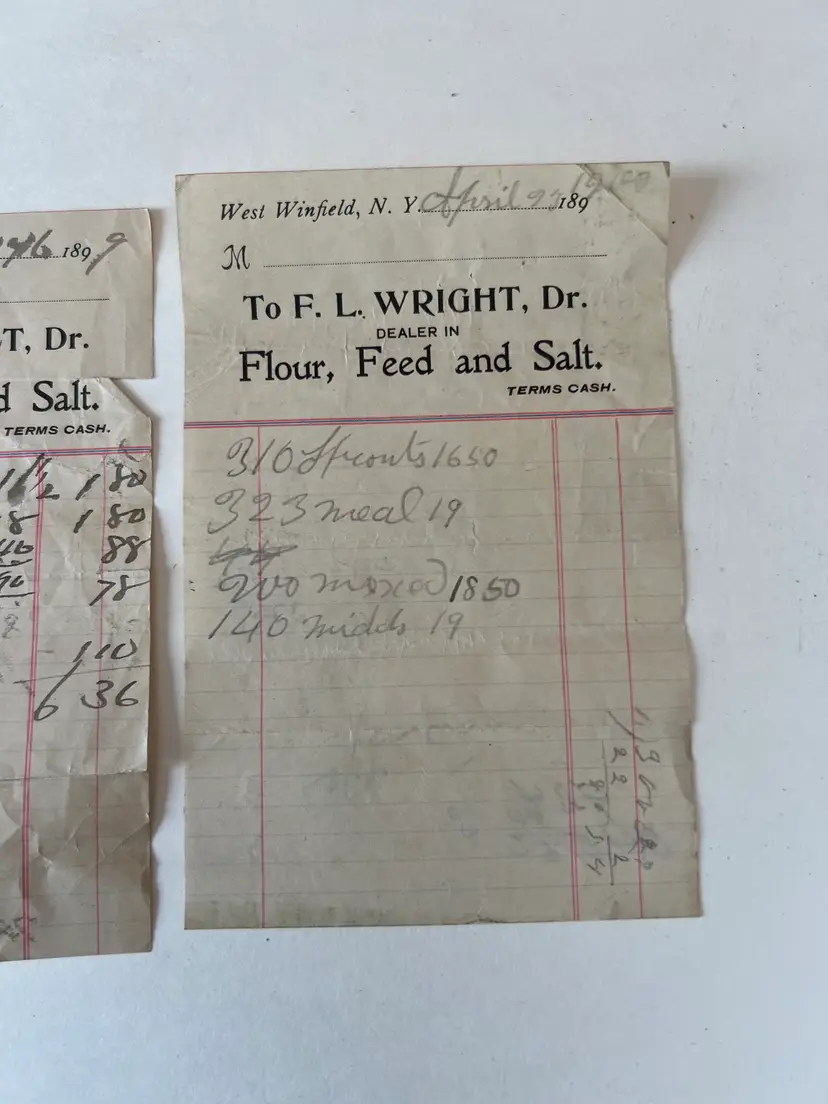 46 1899
T, Dr.
d Salt.
TERMS CASH.
1 80
8 1 80
46 88
78
1 10
6 36
West Winfield, N. Y. April 23 189
M
To F. L. WRIGHT, Dr.
DEALER IN
Flour, Feed and Salt.
TERMS CASH.
310 Sprouts 1650
323 meal 19
200 mixed 1850
140 midds 19